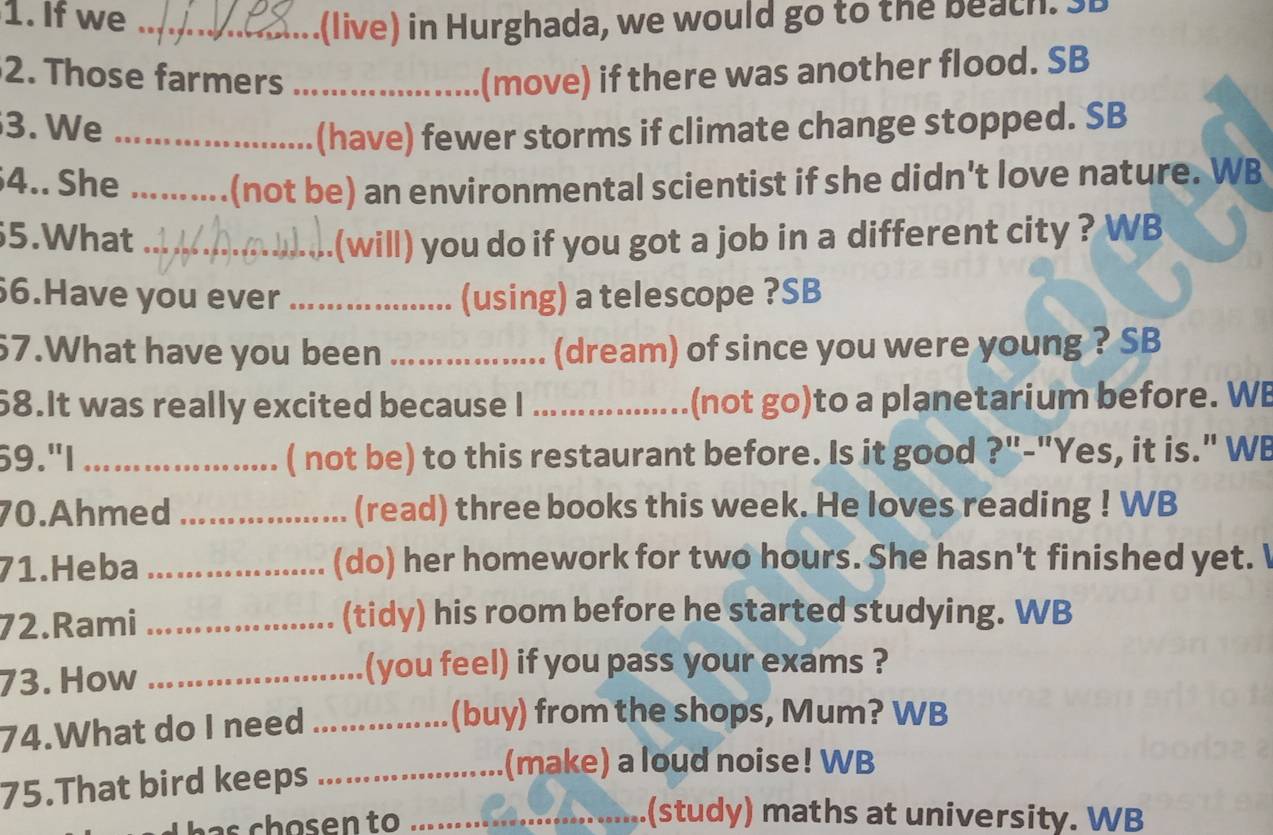 1. If we lives (live) in Hurghada, we would go to the beach. SB
62. Those farmers .................... (move) if there was another flood. SB
63. We ..................... (have) fewer storms if climate change stopped. SB
64.. She .......... (not be) an environmental scientist if she didn't love nature. WB
65.What .................... (will) you do if you got a job in a different city ? WB
66.Have you ever .................. (using) a telescope ?SB
67.What have you been ................. (dream) of since you were young ? SB
68.It was really excited because I ................. (not go)to a planetarium before. WB
69."I ..................... ( not be) to this restaurant before. Is it good ?"-"Yes, it is." WB
70.Ahmed .................. (read) three books this week. He loves reading ! WB
71.Heba ................... (do) her homework for two hours. She hasn't finished yet.
72.Rami .................... (tidy) his room before he started studying. WB
73. How ....................... (you feel) if you pass your exams ?
74.What do I need .............. (buy) from the shops, Mum? WB
75.That bird keeps .................... (make) a loud noise! WB
has chosen to ......................... (study) maths at university. WB
Abdelmegeed